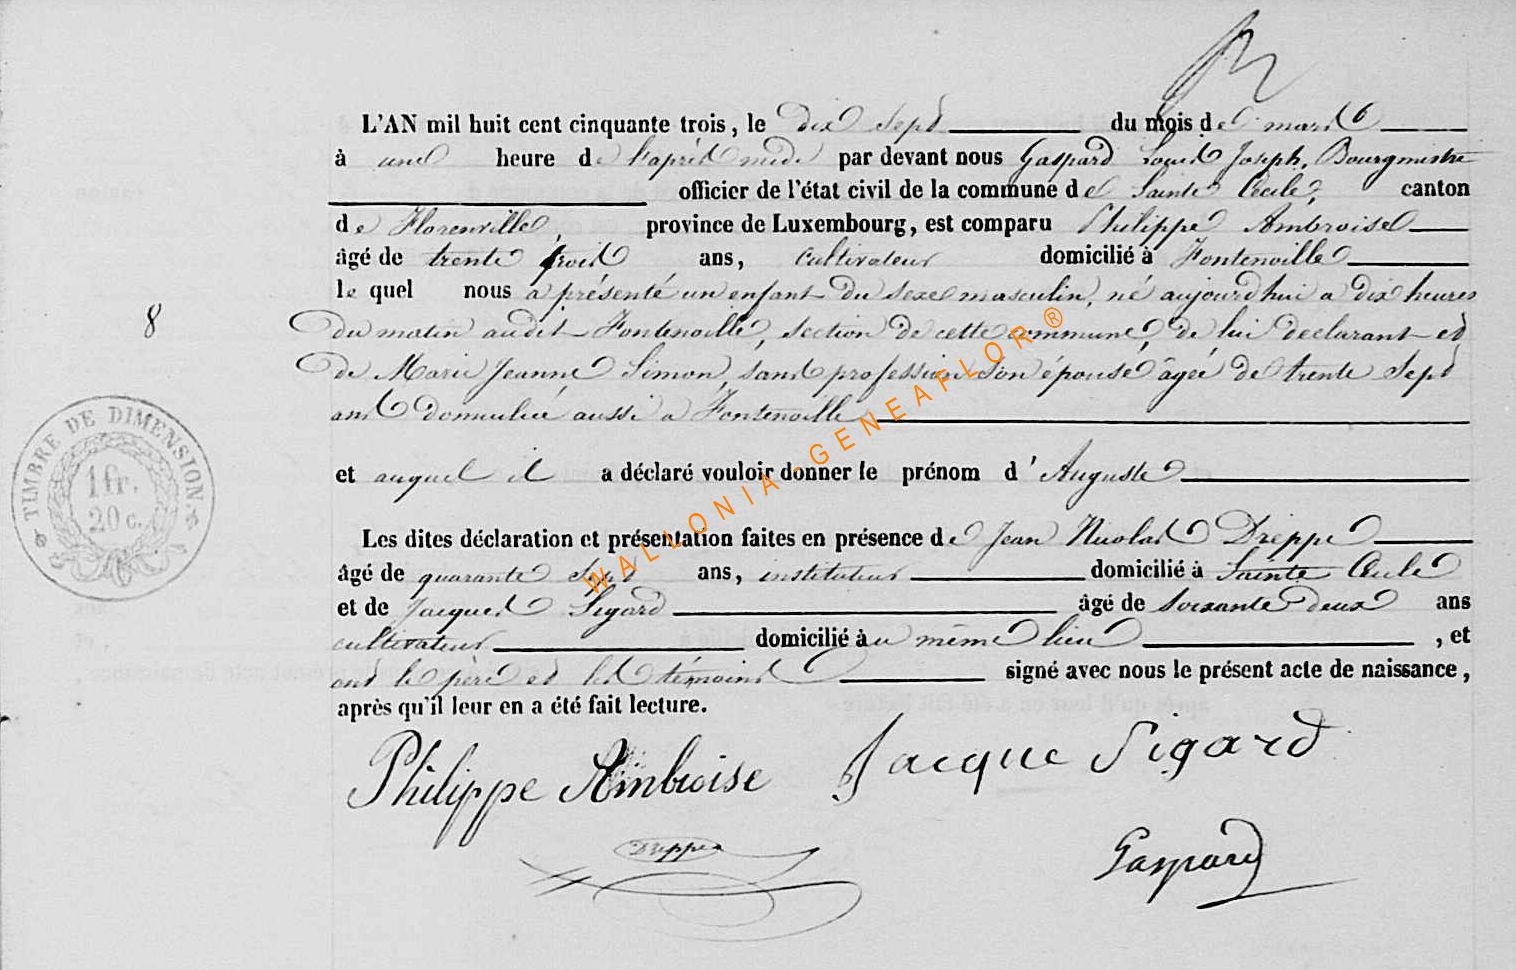 L'AN mil huit cent cinquante trois, le dix sept du mois de mars
à une heure de l'après midi par devant nous Gaspard Louis Joseph, Bourgmestre
officier de l'état civil de la commune de Sainte Cécile, canton
de Florenville, province de Luxembourg, est comparu Philippe Ambroise
âgé de trente trois ans, cultivateur domicilié à Fontenoille
lequel nous a présenté un enfant du sexe masculin, né aujourd'hui a dix heures
du matin audit Fontenoille, section de cette commune, de lui déclarant et
8
de Marie Jeanne Simon, sans profession son épouse, âgée de trente sept
ans domiciliée aussi a Fontenoille
et auquel il a déclaré vouloir donner le prénom d'Auguste
TIMBRE DE DIMENSION
1 fr.
20 c.
Les dites déclaration et présentation faites en présence de Jean Nicolas Dreppe
âgé de quarante sept ans, instituteur domicilié à Sainte Cécile
et de Jacques Sigard âgé de soixante deux ans
cultivateur domicilié au même lieu , et
ont le père et les témoins signé avec nous le présent acte de naissance,
après qu'il leur en a été fait lecture.
Philippe Ambroise Jacque Sigard
Dreppe
Gaspard
WALLONIA-GENEAFLOR®